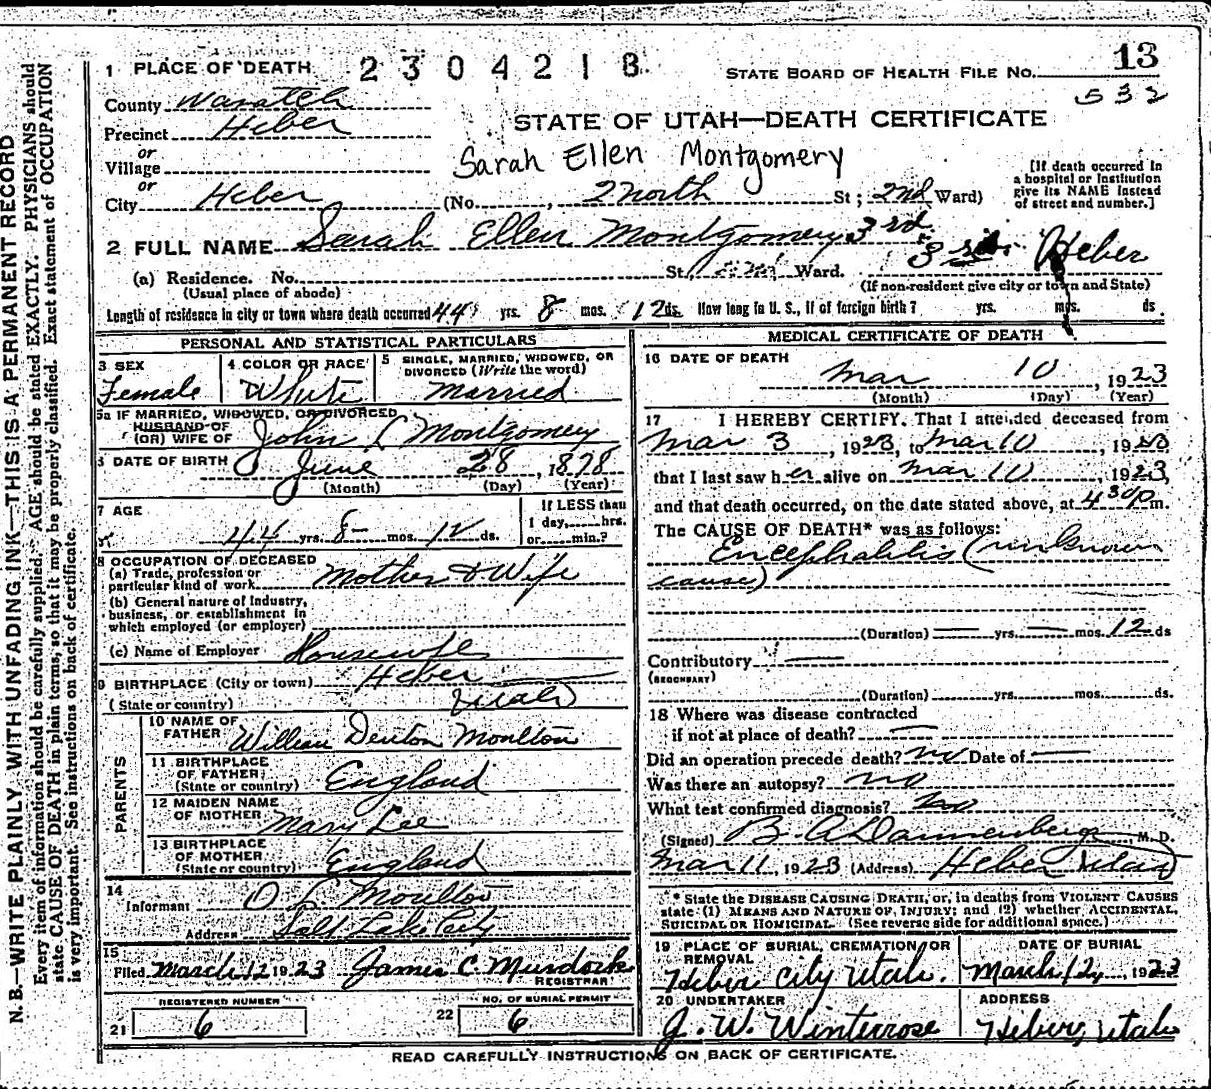 N. B.—WRITE PLAINLY WITH UNFADING INK—THIS IS A PERMANENT RECORD
Every item of information should be carefully supplied. AGE should be stated EXACTLY. PHYSICIANS should
state CAUSE OF DEATH in plain terms, so that it may be properly classified. Exact statement of OCCUPATION
is very important. See instructions on back of certificate.
1 PLACE OF DEATH 2304218 STATE BOARD OF HEALTH FILE NO. 13
532
County Wasatch
Precinct Heber
STATE OF UTAH—DEATH CERTIFICATE
or
Village
Sarah Ellen Montgomery
or
City Heber (No. , 2 North St; 2nd Ward)
[If death occurred in
a hospital or institution
give its NAME instead
of street and number.]
2 FULL NAME Sarah Ellen Montgomery 3rd.
3rd. Heber
(a) Residence. No. St, Ward.
(Usual place of abode) (If non-resident give city or town and State)
Length of residence in city or town where death occurred 44 yrs. 8 mos. 12 ds. How long in U. S., if of foreign birth? yrs. mos. ds.
PERSONAL AND STATISTICAL PARTICULARS
3 SEX
Female
4 COLOR OR RACE
White
5 SINGLE, MARRIED, WIDOWED, OR
DIVORCED (Write the word)
Married
5a IF MARRIED, WIDOWED, OR DIVORCED
HUSBAND OF
(OR) WIFE OF John C Montgomery
6 DATE OF BIRTH June 28, 1878
(Month) (Day) (Year)
7 AGE
44 yrs. 8 mos. 12 ds.
If LESS than
1 day, hrs.
or min.?
8 OCCUPATION OF DECEASED
(a) Trade, profession or
particular kind of work Mother & Wife
(b) General nature of Industry,
business, or establishment in
which employed (or employer)
(c) Name of Employer Housewife
9 BIRTHPLACE (City or town) Heber
(State or country) Utah
PARENTS
10 NAME OF
FATHER William Denton Moulton
11 BIRTHPLACE
OF FATHER
(State or country) England
12 MAIDEN NAME
OF MOTHER Mary Lee
13 BIRTHPLACE
OF MOTHER
(State or country) England
14
Informant O L Moulton
Address Salt Lake City
15
Filed March 12 1923 James C. Murdock
REGISTRAR
REGISTERED NUMBER
21 6
NO. OF BURIAL PERMIT
22 6
MEDICAL CERTIFICATE OF DEATH
16 DATE OF DEATH
Mar 10, 1923
(Month) (Day) (Year)
17 I HEREBY CERTIFY. That I attended deceased from
Mar 3, 1923, to Mar 10, 1923
that I last saw her alive on Mar 10, 1923,
and that death occurred, on the date stated above, at 4 30 p m.
The CAUSE OF DEATH* was as follows:
Encephalitis (unknown
cause)
(Duration) — yrs. — mos. 12 ds
Contributory —
(SECONDARY)
(Duration) yrs. mos. ds.
18 Where was disease contracted
if not at place of death? —
Did an operation precede death? no Date of —
Was there an autopsy? no
What test confirmed diagnosis?
(Signed) B. A Dannenberg M. D.
Mar 11, 1923 (Address) Heber Utah
* State the DISEASE CAUSING DEATH, or, in deaths from VIOLENT CAUSES
state (1) MEANS AND NATURE OF INJURY; and (2) whether ACCIDENTAL,
SUICIDAL OR HOMICIDAL. (See reverse side for additional space.)
19 PLACE OF BURIAL, CREMATION, OR
REMOVAL
Heber City Utah.
DATE OF BURIAL
March 12, 1923
20 UNDERTAKER
J. W. Winterrose
ADDRESS
Heber, Utah
READ CAREFULLY INSTRUCTIONS ON BACK OF CERTIFICATE.